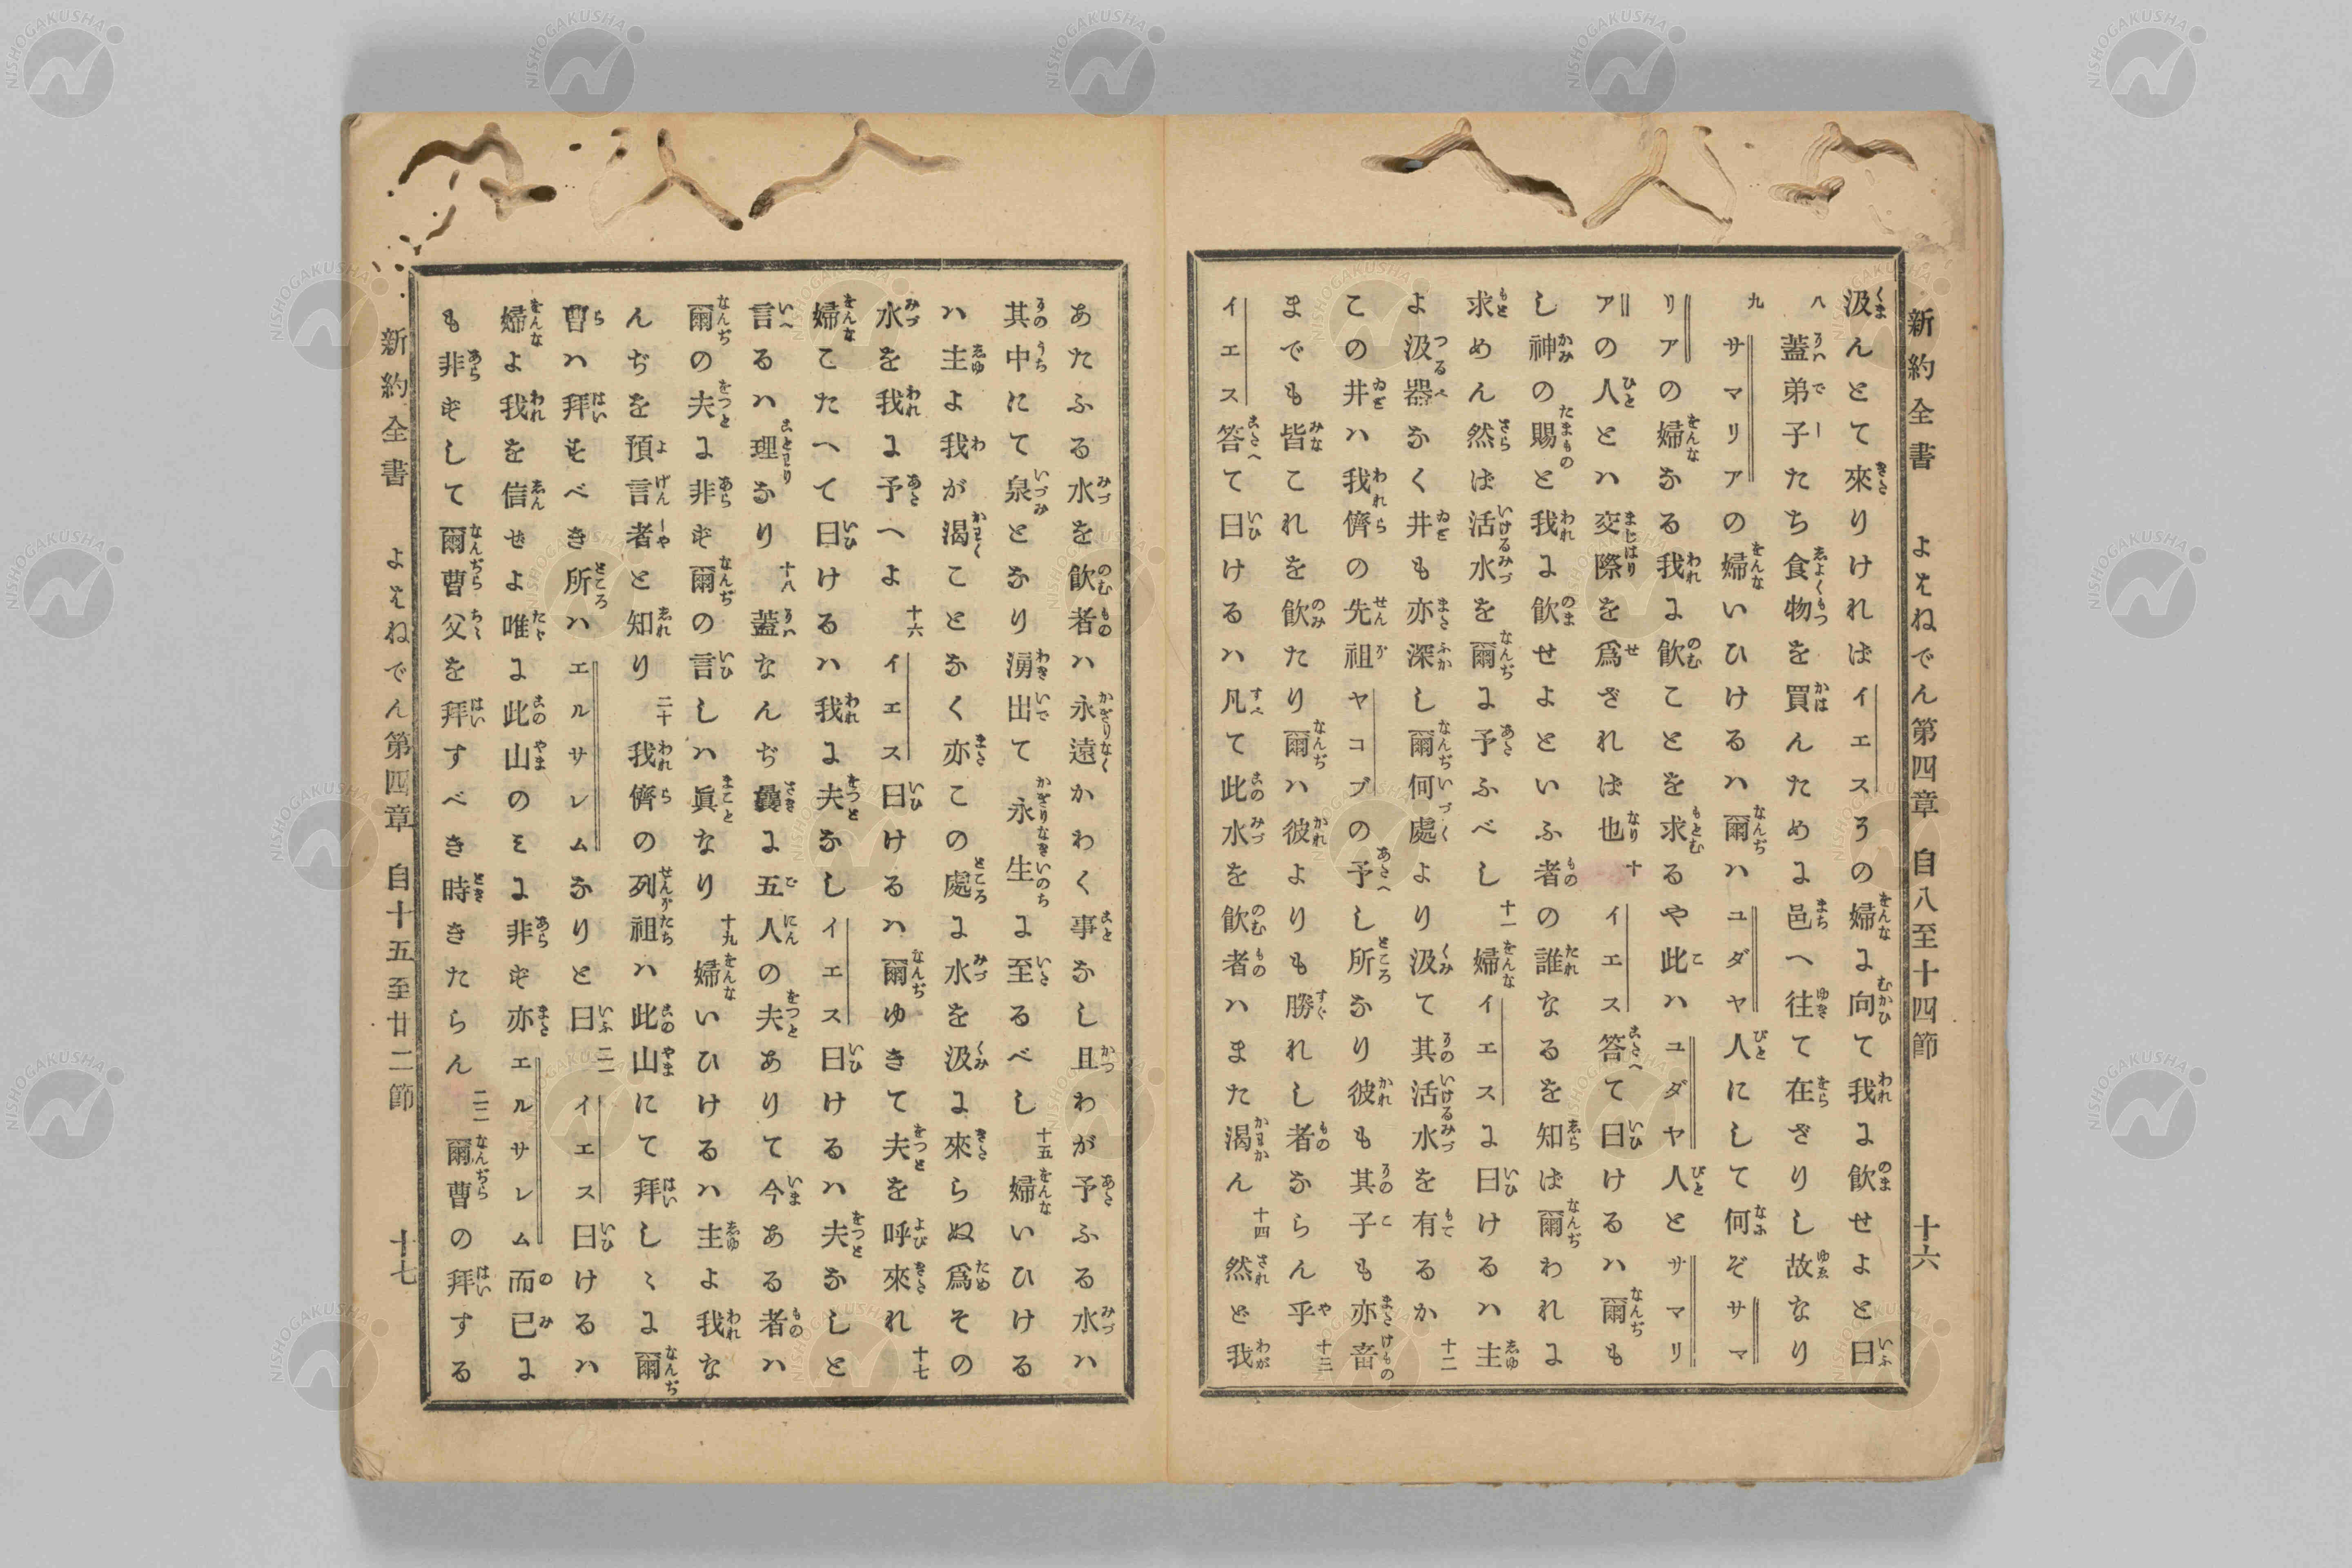 新約全書 よはねでん第四章 自八至十四節 十六
汲んとて來りければイエスその婦に向て我に飮せよと曰
八 蓋弟子たち食物を買んために邑へ往て在ざりし故なり
九 サマリアの婦いひけるハ爾ハユダヤ人にして何ぞサマ
リアの婦なる我に飮ことを求るや此ハユダヤ人とサマリ
アの人とハ交際を爲ざれば也 十 イエス答て曰けるハ爾も
し神の賜と我に飮せよといふ者の誰なるを知ば爾われに
求めん然ば活水を爾に予ふべし 十一 婦イエスに曰けるハ主
よ汲器なく井も亦深し爾何處より汲て其活水を有るか 十二
この井ハ我儕の先祖ヤコブの予へし所なり彼も其子も亦畜
までも皆これを飮たり爾ハ彼よりも勝れし者ならん乎 十三
イエス答て曰けるハ凡て此水を飮者ハまた渴ん 十四 然ど我
あたふる水を飮者ハ永遠かわく事なし且わが予ふる水ハ
其中にて泉となり湧出て永生に至るべし 十五 婦いひける
ハ主よ我が渴ことなく亦この處に水を汲に來らぬ爲その
水を我に予へよ 十六 イエス曰けるハ爾ゆきて夫を呼來れ 十七
婦こたへて曰けるハ我に夫なしイエス曰けるハ夫なしと
言るハ理なり 十八 蓋なんぢ曩に五人の夫ありて今ある者ハ
爾の夫に非ず爾の言しハ眞なり 十九 婦いひけるハ主よ我な
んぢを預言者と知り 二十 我儕の列祖ハ此山にて拜しゝに爾
曹ハ拜すべき所ハエルサレムなりと曰 二一 イエス曰けるハ
婦よ我を信せよ唯に此山のミに非ず亦エルサレム而已に
も非ずして爾曹父を拜すべき時きたらん 二二 爾曹の拜する
新約全書 よはねでん第四章 自十五至廿二節 十七
NISHOGAKUSHA